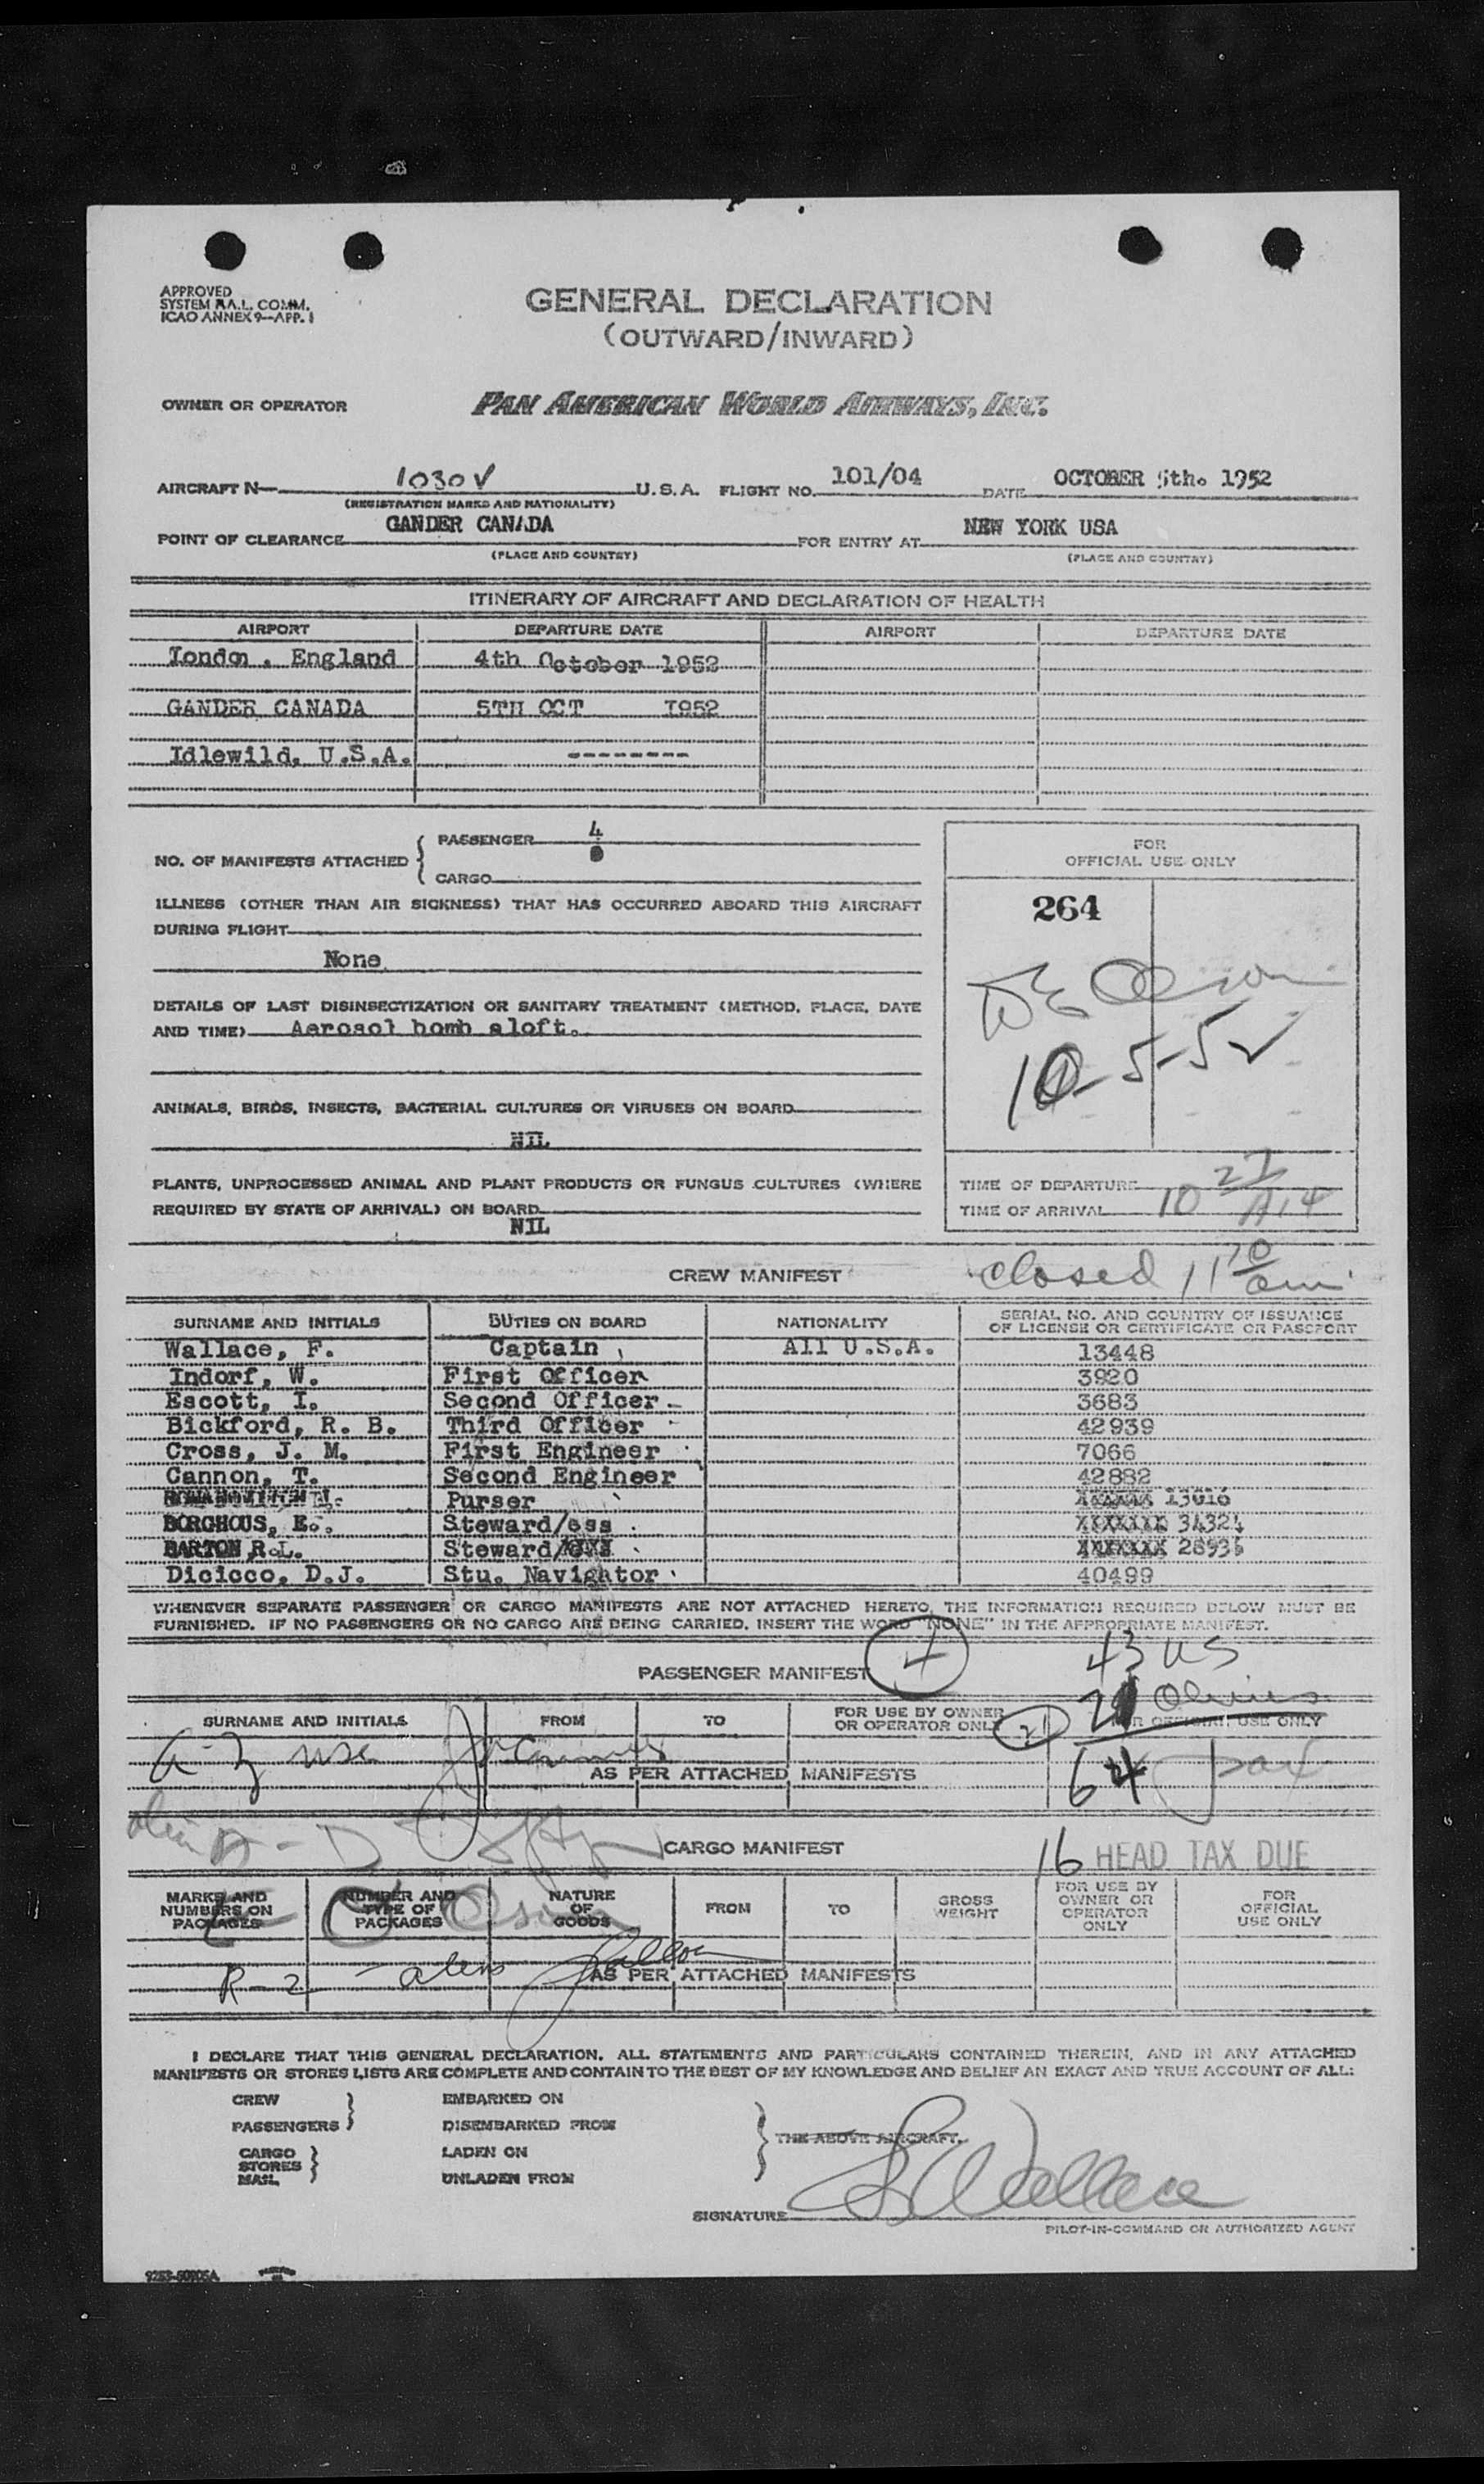 APPROVED
SYSTEM P.A.L. COMM.
ICAO ANNEX 9—APP. 1
GENERAL DECLARATION
(OUTWARD/INWARD)
OWNER OR OPERATOR PAN AMERICAN WORLD AIRWAYS, INC.
AIRCRAFT N— 1030V U.S.A. FLIGHT NO. 101/04 DATE OCTOBER 5th. 1952
(REGISTRATION MARKS AND NATIONALITY)
POINT OF CLEARANCE GANDER CANADA FOR ENTRY AT NEW YORK USA
(PLACE AND COUNTRY) (PLACE AND COUNTRY)
ITINERARY OF AIRCRAFT AND DECLARATION OF HEALTH
AIRPORT DEPARTURE DATE AIRPORT DEPARTURE DATE
London, England 4th October 1952
GANDER CANADA 5TH OCT 1952
Idlewild, U.S.A. --------
NO. OF MANIFESTS ATTACHED { PASSENGER 4
CARGO
FOR
OFFICIAL USE ONLY
264
10-5-52
ILLNESS (OTHER THAN AIR SICKNESS) THAT HAS OCCURRED ABOARD THIS AIRCRAFT
DURING FLIGHT
None
DETAILS OF LAST DISINSECTIZATION OR SANITARY TREATMENT (METHOD, PLACE, DATE
AND TIME) Aerosol bomb aloft.
ANIMALS, BIRDS, INSECTS, BACTERIAL CULTURES OR VIRUSES ON BOARD
NIL
PLANTS, UNPROCESSED ANIMAL AND PLANT PRODUCTS OR FUNGUS CULTURES (WHERE
REQUIRED BY STATE OF ARRIVAL) ON BOARD
NIL
TIME OF DEPARTURE
TIME OF ARRIVAL 10 27
closed 11 10 am
CREW MANIFEST
SURNAME AND INITIALS DUTIES ON BOARD NATIONALITY SERIAL NO. AND COUNTRY OF ISSUANCE
OF LICENSE OR CERTIFICATE OR PASSPORT
Wallace, F. Captain All U.S.A. 13448
Indorf, W. First Officer 3920
Escott, I. Second Officer 3683
Bickford, R. B. Third Officer 42939
Cross, J. M. First Engineer 7066
Cannon, T. Second Engineer 42882
Purser
BORGHOUS, E. Steward/ess 34324
BARTON R.L. Steward/
Dicicco, D.J. Stu. Navigator 40499
WHENEVER SEPARATE PASSENGER OR CARGO MANIFESTS ARE NOT ATTACHED HERETO, THE INFORMATION REQUIRED BELOW MUST BE
FURNISHED. IF NO PASSENGERS OR NO CARGO ARE BEING CARRIED, INSERT THE WORD "NONE" IN THE APPROPRIATE MANIFEST.
PASSENGER MANIFEST 4 43 US
21
SURNAME AND INITIALS FROM TO FOR USE BY OWNER
OR OPERATOR ONLY 21 FOR OFFICIAL USE ONLY
64 pax
AS PER ATTACHED MANIFESTS
CARGO MANIFEST 16 HEAD TAX DUE
MARKS AND
NUMBERS ON
PACKAGES
NUMBER AND
TYPE OF
PACKAGES
NATURE
OF
GOODS
FROM
TO
GROSS
WEIGHT
FOR USE BY
OWNER OR
OPERATOR
ONLY
FOR
OFFICIAL
USE ONLY
R-2 - aliens
AS PER ATTACHED MANIFESTS
I DECLARE THAT THIS GENERAL DECLARATION, ALL STATEMENTS AND PARTICULARS CONTAINED THEREIN, AND IN ANY ATTACHED
MANIFESTS OR STORES LISTS ARE COMPLETE AND CONTAIN TO THE BEST OF MY KNOWLEDGE AND BELIEF AN EXACT AND TRUE ACCOUNT OF ALL:
CREW EMBARKED ON
PASSENGERS } DISEMBARKED FROM } THE ABOVE AIRCRAFT.
CARGO LADEN ON
STORES }
MAIL UNLADEN FROM
SIGNATURE F Wallace
PILOT-IN-COMMAND OR AUTHORIZED AGENT